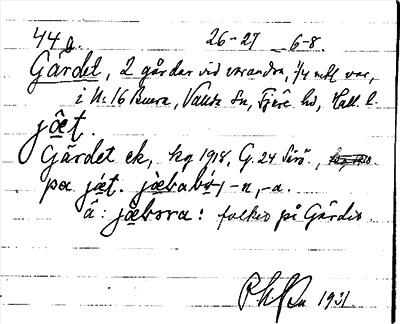 44b. 26-27 6-8.
Gärdet, 2 gårdar vid varandra, 1/4 mtl var,
i N: 16 Buera, Valda Sn, Fjäre hd, Hall. l.
jæt.
Gärdet ek, kg 1918, G. 24
pa jæt. jæbabó, -n, -a.
å: jæbora: folket på Gärdet
1931.